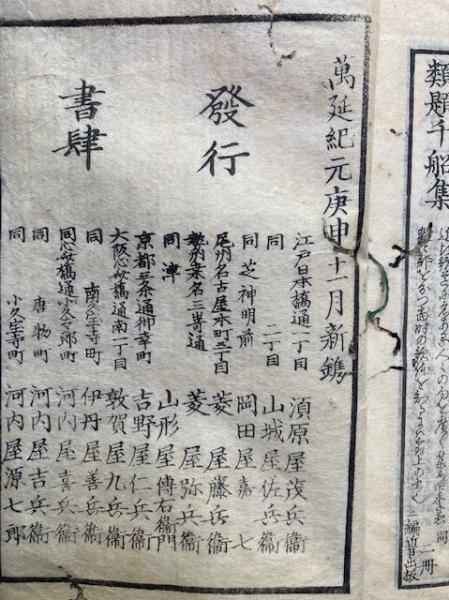 類題千船集
二編皆出版
一冊
萬延紀元庚申十一月新鐫
發行
書肆
江戸日本橋通一丁目 須原屋茂兵衞
同 二丁目 山城屋佐兵衞
同 芝神明前 岡田屋嘉七
尾州名古屋本町三丁目 菱屋藤兵衞
勢州桑名三嵜通 菱屋弥兵衞
同津 山形屋傳右衞門
京都三条通御幸町 吉野屋仁兵衞
大阪心斎橋通南一丁目 敦賀屋九兵衞
同 南久宝寺町 伊丹屋善兵衞
同心斎橋通小久太郎町 河内屋喜兵衞
同 唐物町 河内屋吉兵衞
同 小久宝寺町 河内屋源七郎